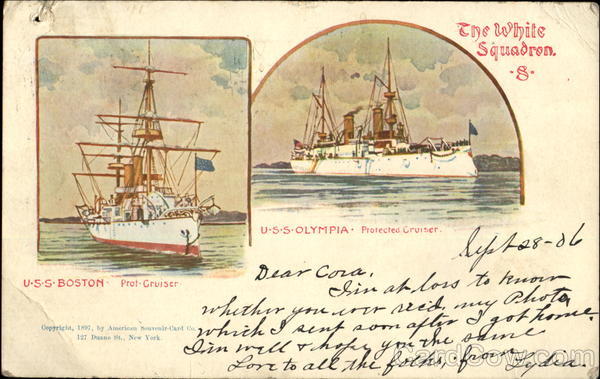 The White
Squadron.
·8·
U·S·S·BOSTON· Prot·Cruiser·
U·S·S·OLYMPIA· Protected Cruiser.
Copyright, 1897, by American Souvenir-Card Co.
127 Duane St., New York.
Sept 28-06
Dear Cora,
I'm at loss to know
whether you ever rec'd, my Photo,
which I sent soon after I got home.
I'm well & hope you the same
Love to all the folks, from
Lydia.
CardCow.com